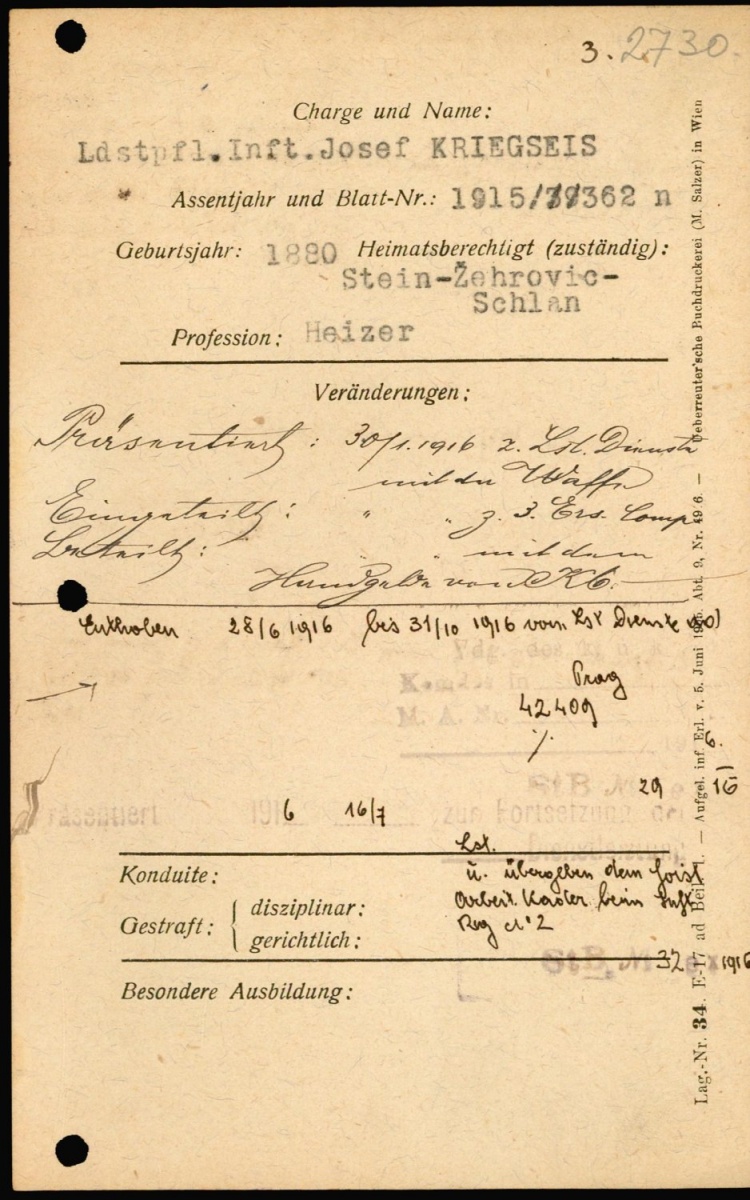 3. 2730.
Charge und Name:
Ldstpfl.Inft.Josef KRIEGSEIS
Assentjahr und Blatt-Nr.: 1915/362 n
Geburtsjahr: 1880 Heimatsberechtigt (zuständig):
Stein-Žehrovic-
Schlan
Profession: Heizer
Veränderungen:
Präsentiert: 30/1.1916 z. Lst. Dienste
mit der Waffe
Eingeteilt: " " z. 3. Ers. Comp
Beteilt: " " mit dem
Handgelde von K6.
Enthoben 28/6 1916 bis 31/10 1916 vom Lst Dienste
Vdg. des k. u. k.
Prag
M. A. Nr. 42409
StB № 29
Präsentiert 1916 16/7 zur Fortsetzung der
Lst. Dienstleistung
Konduite:
u. übergeben dem
Gestraft: { disziplinar:
Arbeit. Kader beim Inft
gerichtlich:
Reg № 2
StB. № 32 ex 1916
Besondere Ausbildung:
Lag.-Nr. 34. E-17 ad Beil. 1. — Aufgel. inf. Erl. v. 5. Juni Abt. 9, Nr. — Ueberreuter'sche Buchdruckerei (M. Salzer) in Wien